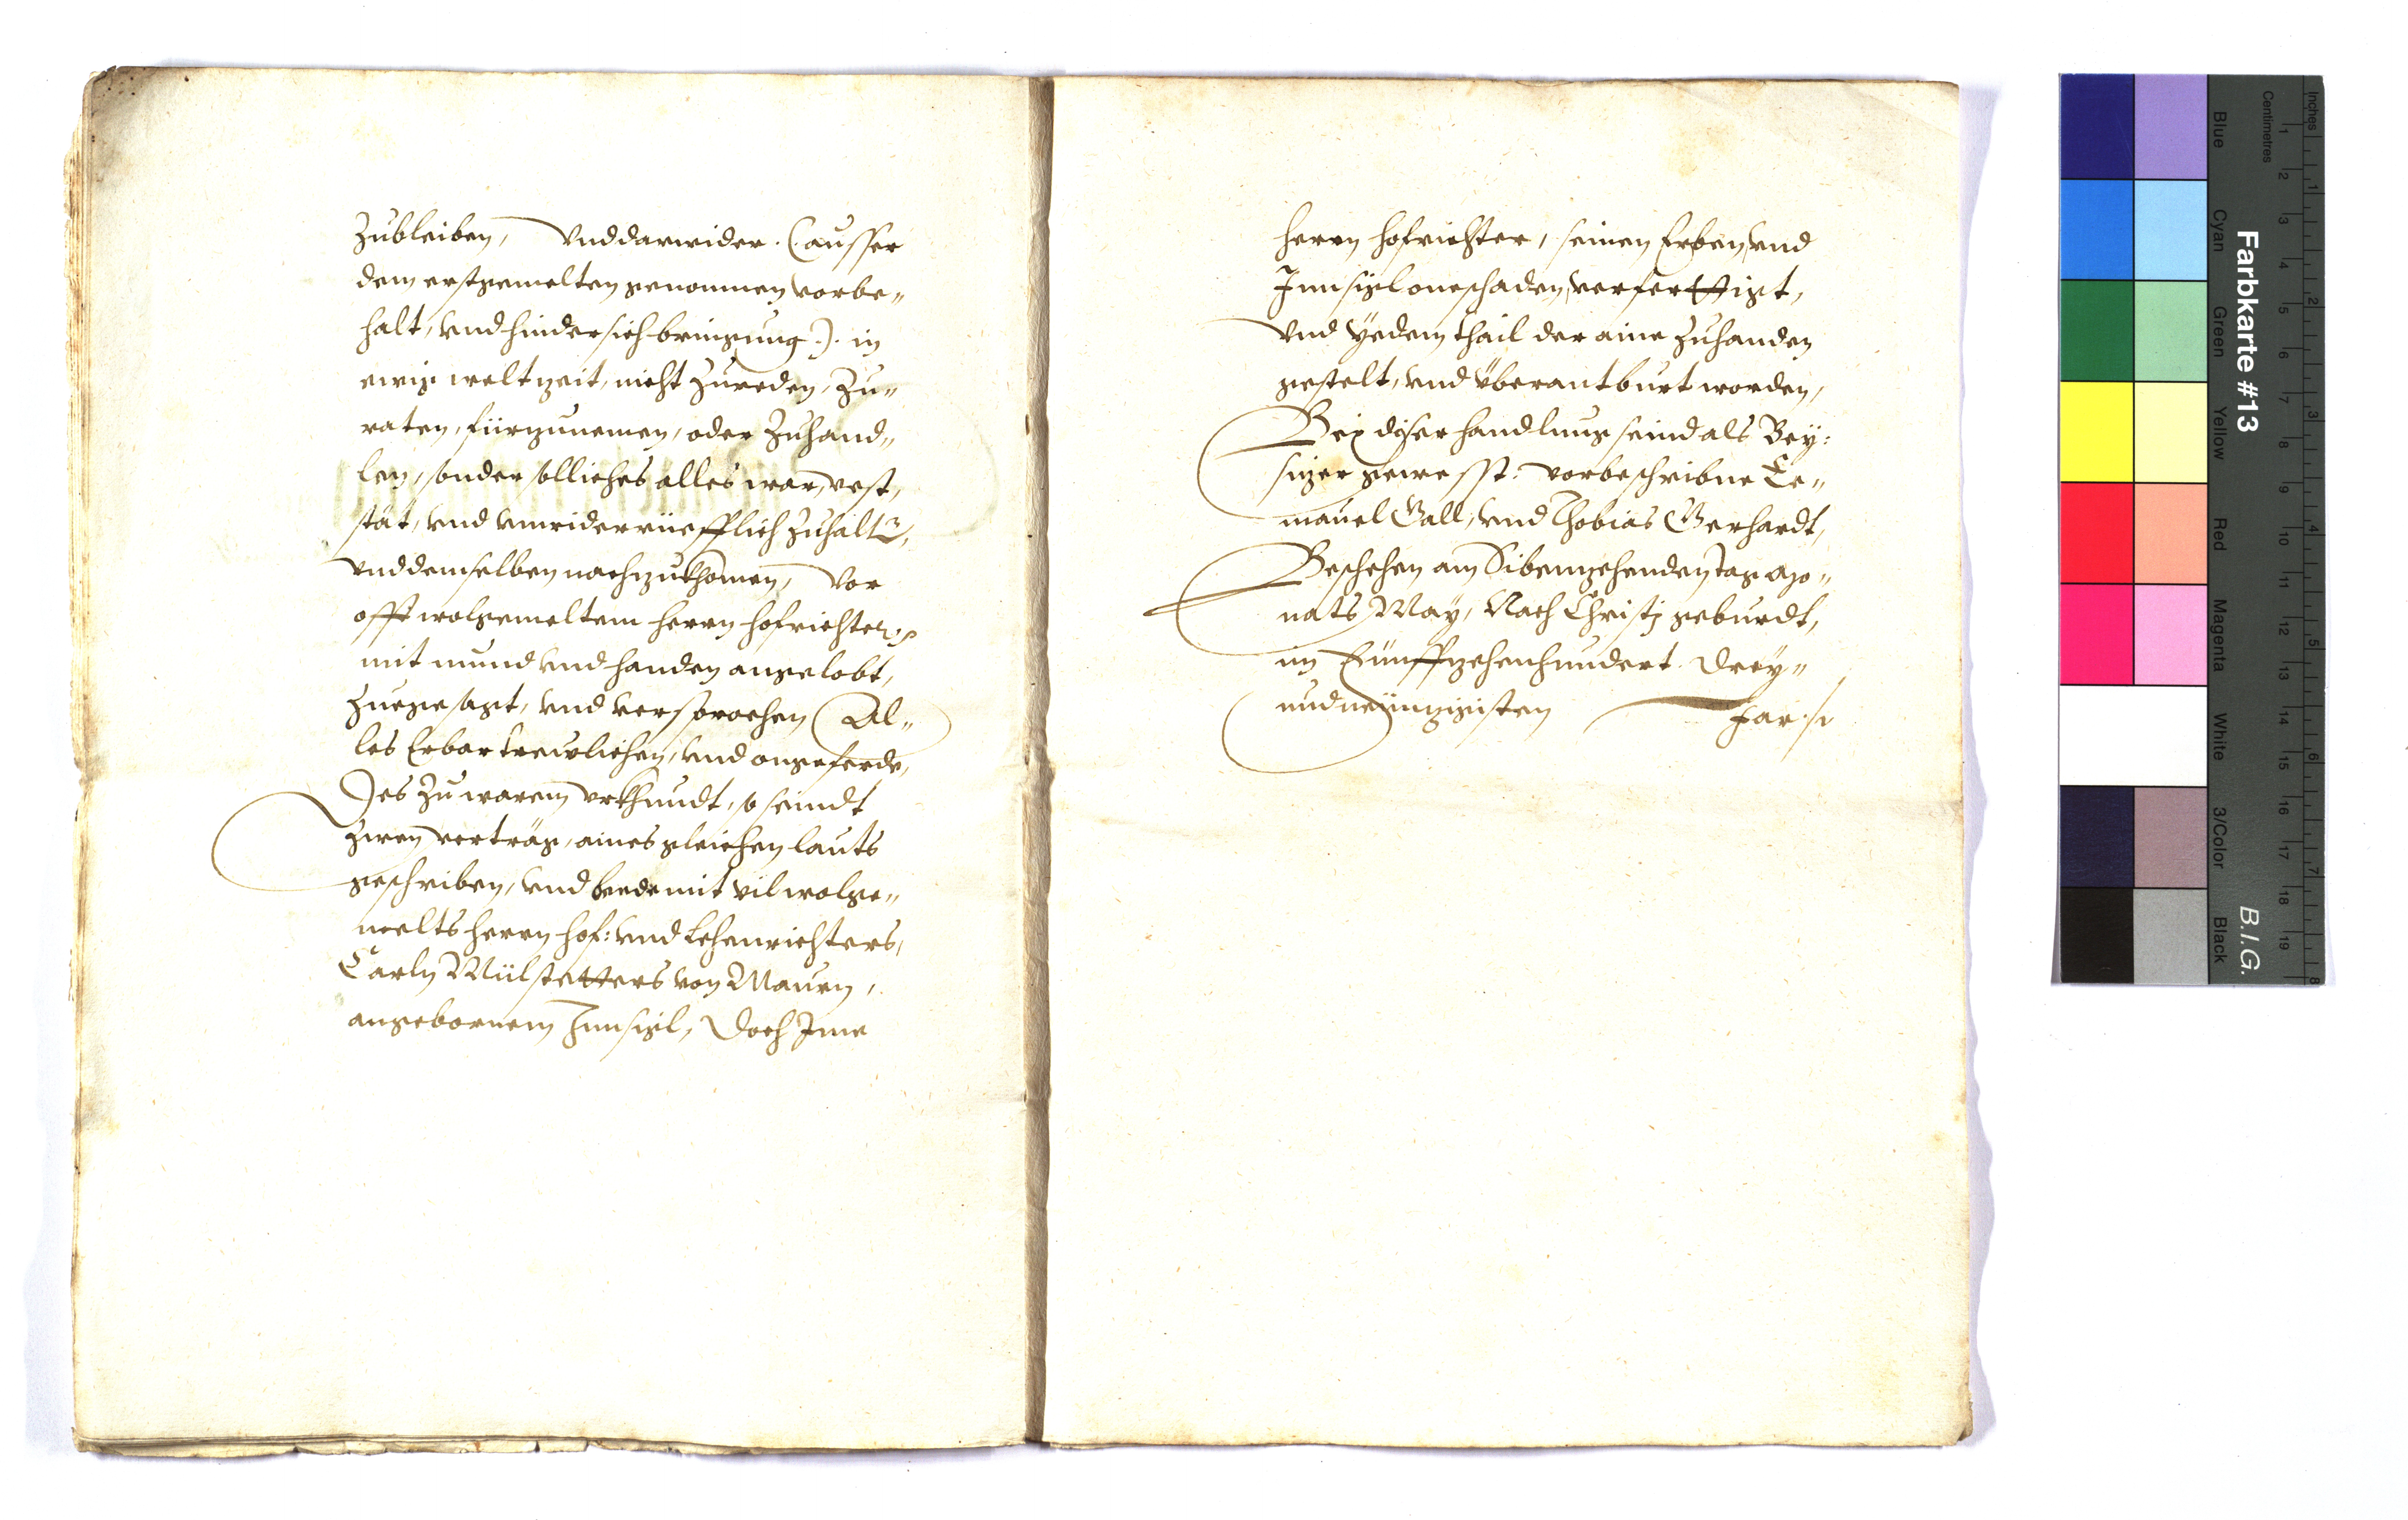 Zubleiben, Vnd darwider. (ausser
dem erstgemelten genommen vorbe„
halt, vnd hindersichbringung.). in
ewig weltzeit, nicht Zureden, Zu„
raten, fürzunemen, oder Zuhand„
len, sonder solliches alles war, vest,
stät, vnd vnwiderrüefflich Zuhaltn,
vnd demselben nachzukhomen, Vor
offt wolgemeltem herrn hofrichter,
mit mund vnd handen angelobt,
Zuegesagt, vnd versprochen Al„
les Erbar trewlichen, vnd ongeferde,
Des Zu warem vrkhundt, so seindt
Zwen verträg, aines gleichen lauts
geschriben, vnd beede mit vilwolge„
melts herrn hof: vnd Lehenrichters,
Carln Mülstetters von Maurn,
angebornem Innsigl, Doch Jme
herrn hofrichter, seinen Erben, vnd
Innsigl oneschaden, verferttigt,
Vnd yedem thail der aine Zuhanden
gestelt, vnd überantburt worden,
Bey diser handlung seind als Bey:
sizer gewesst. vorbeschribne Ee„
manuel Gall, vnd Thobias Gerhardt,
Beschehen am Sibenzehenden tag Mo„
nats May, Nach Christj geburdt,
im Fünffzehenhundert. Drey„
undneünzigisten Jar.
Farbkarte #13
B.I.G.
Inches
Centimetres
Blue
Cyan
Green
Yellow
Red
Magenta
White
3/Color
Black
1 2 3 4 5 6 7 8 9 10 11 12 13 14 15 16 17 18 19
1 2 3 4 5 6 7 8